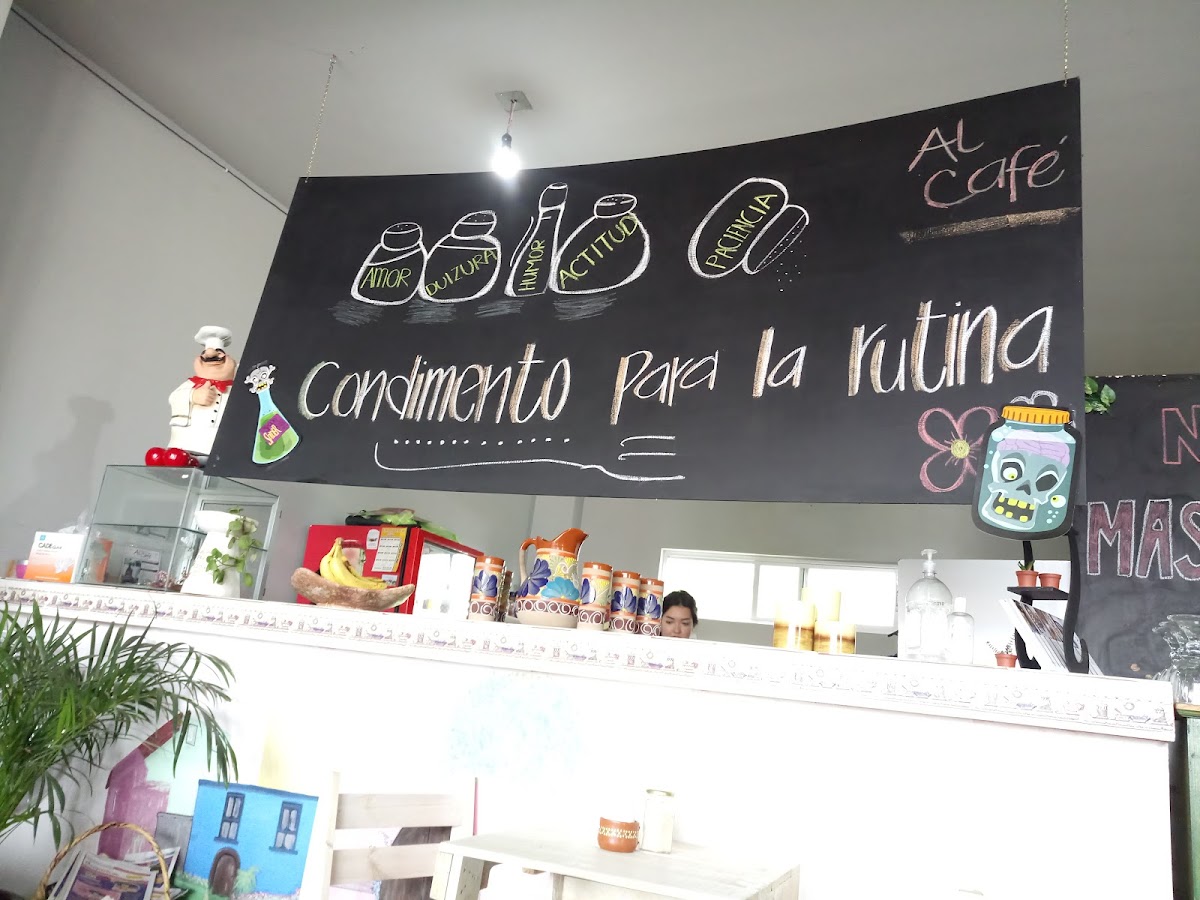 AL
Café
AMOR
DULZURA
HUMOR
ACTITUD
PACIENCIA
Condimento para la rutina
MAS